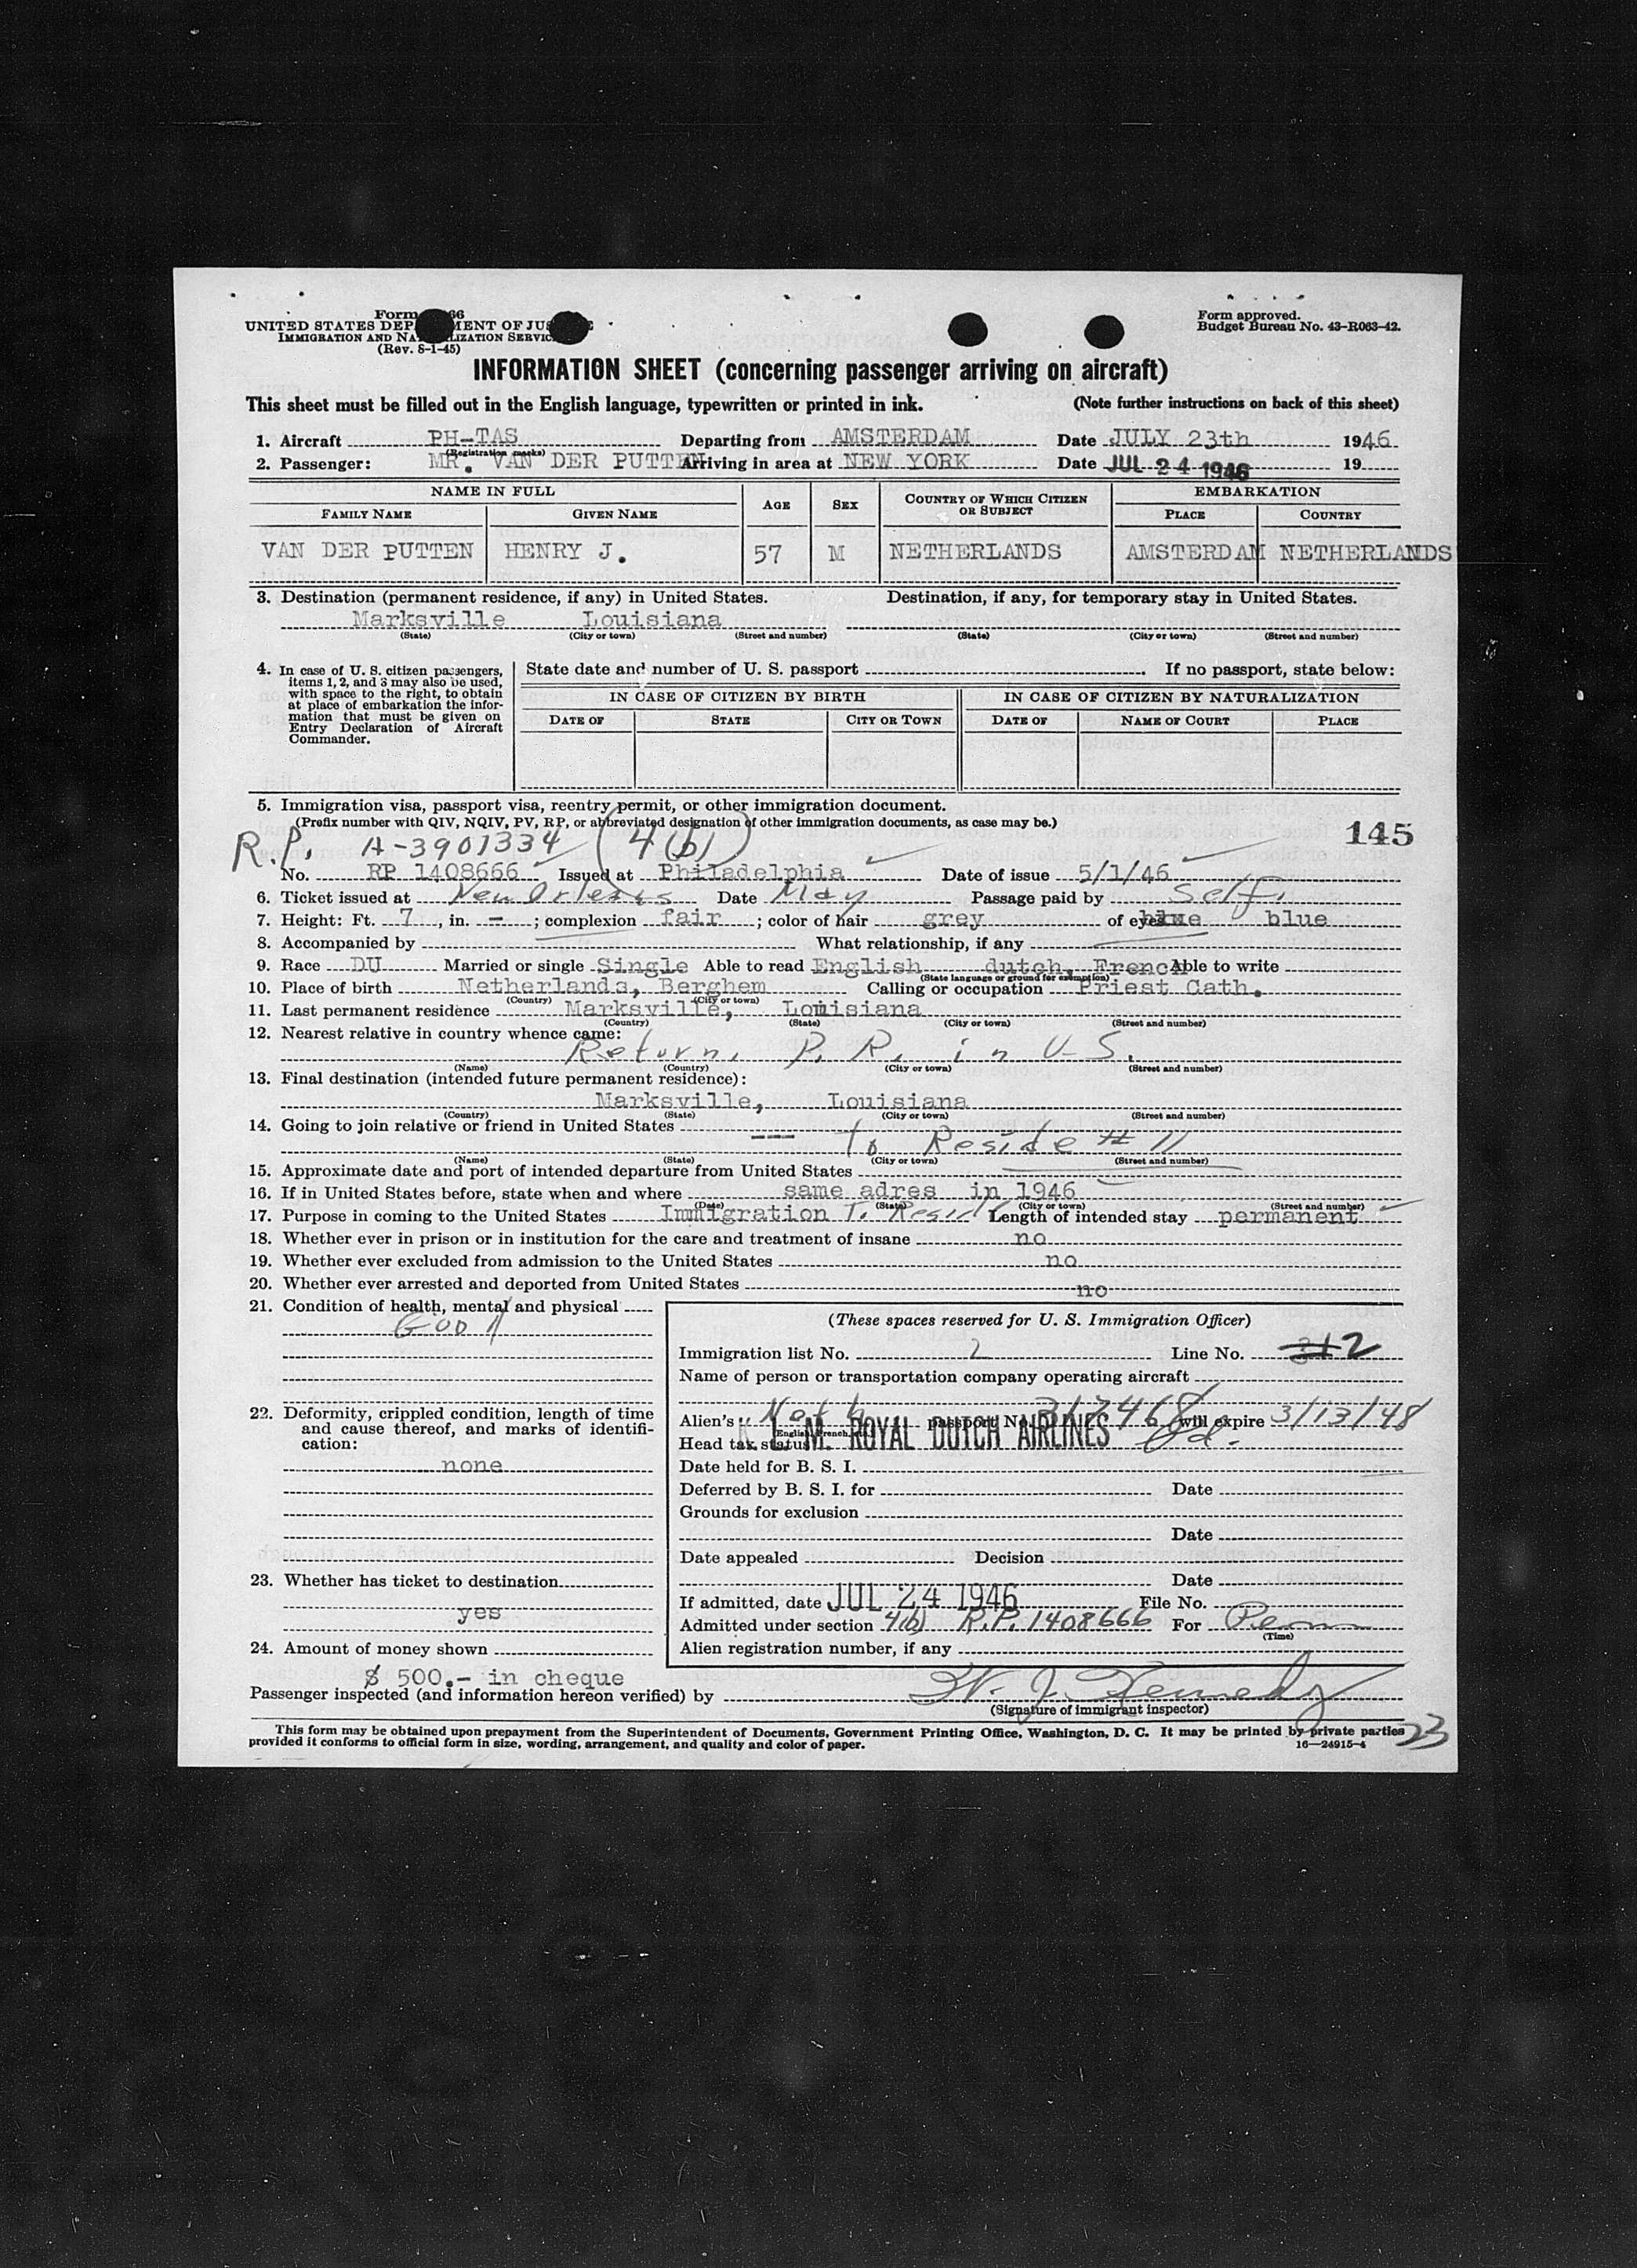 Form 66
UNITED STATES DEP MENT OF JUS E
IMMIGRATION AND NA LIZATION SERVIC
(Rev. 8-1-45)
Form approved.
Budget Bureau No. 43-R063-42.
INFORMATION SHEET (concerning passenger arriving on aircraft)
This sheet must be filled out in the English language, typewritten or printed in ink. (Note further instructions on back of this sheet)
1. Aircraft PH-TAS Departing from AMSTERDAM Date JULY 23th 1946
(Registration marks)
2. Passenger: MR. VAN DER PUTTEN Arriving in area at NEW YORK Date JUL 24 1946 19
NAME IN FULL AGE SEX COUNTRY OF WHICH CITIZEN OR SUBJECT EMBARKATION
FAMILY NAME GIVEN NAME PLACE COUNTRY
VAN DER PUTTEN HENRY J. 57 M NETHERLANDS AMSTERDAM NETHERLANDS
3. Destination (permanent residence, if any) in United States. Destination, if any, for temporary stay in United States.
Marksville Louisiana
(State) (City or town) (Street and number) (State) (City or town) (Street and number)
4. In case of U. S. citizen passengers, items 1, 2, and 3 may also be used, with space to the right, to obtain at place of embarkation the information that must be given on Entry Declaration of Aircraft Commander.
State date and number of U. S. passport If no passport, state below:
IN CASE OF CITIZEN BY BIRTH IN CASE OF CITIZEN BY NATURALIZATION
DATE OF STATE CITY OR TOWN DATE OF NAME OF COURT PLACE
5. Immigration visa, passport visa, reentry permit, or other immigration document.
(Prefix number with QIV, NQIV, PV, RP, or abbreviated designation of other immigration documents, as case may be.)
145
R.P. A-3901334 (4(b))
No. RP 1408666 Issued at Philadelphia Date of issue 5/1/46
6. Ticket issued at New Orleans Date May Passage paid by Self.
7. Height: Ft. 7, in. -; complexion fair; color of hair grey of eyes blue blue
8. Accompanied by What relationship, if any
9. Race DU Married or single Single Able to read English dutch, French Able to write
(State language or ground for exemption)
10. Place of birth Netherlands, Berghem Calling or occupation Priest Cath.
(Country) (City or town)
11. Last permanent residence Marksville, Louisiana
(Country) (State) (City or town) (Street and number)
12. Nearest relative in country whence came:
Return. P. R. in U-S.
(Name) (Country) (City or town) (Street and number)
13. Final destination (intended future permanent residence):
Marksville, Louisiana
(Country) (State) (City or town) (Street and number)
14. Going to join relative or friend in United States ---
To Reside # 11
(Name) (State) (City or town) (Street and number)
15. Approximate date and port of intended departure from United States
16. If in United States before, state when and where same adres in 1946
(Date) (State) (City or town) (Street and number)
17. Purpose in coming to the United States Immigration Length of intended stay permanent
18. Whether ever in prison or in institution for the care and treatment of insane no
19. Whether ever excluded from admission to the United States no
20. Whether ever arrested and deported from United States no
21. Condition of health, mental and physical
Good
22. Deformity, crippled condition, length of time and cause thereof, and marks of identification:
none
23. Whether has ticket to destination
yes
24. Amount of money shown
$ 500.- in cheque
(These spaces reserved for U. S. Immigration Officer)
Immigration list No. 2 Line No. 2
Name of person or transportation company operating aircraft
K. L. M. ROYAL DUTCH AIRLINES
Alien's Neth passport No. 317468 will expire 3/13/48
(English, French, etc.)
Head tax status Pd.
Date held for B. S. I.
Deferred by B. S. I. for Date
Grounds for exclusion
Date
Date appealed Decision
Date
If admitted, date JUL 24 1946 File No.
Admitted under section 4(b) R.P. 1408666 For Perm
(Time)
Alien registration number, if any
Passenger inspected (and information hereon verified) by W. J. Kennedy
(Signature of immigrant inspector)
This form may be obtained upon prepayment from the Superintendent of Documents, Government Printing Office, Washington, D. C. It may be printed by private parties
provided it conforms to official form in size, wording, arrangement, and quality and color of paper. 16—24915-4
23